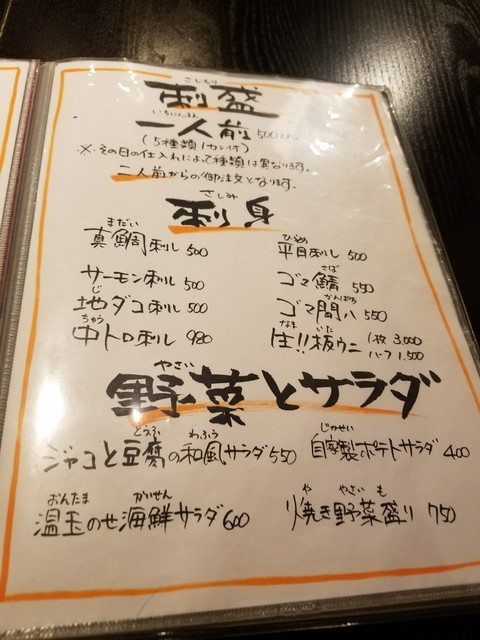 さしもり
刺盛
いちにんまえ
一人前 500
(5種類1カン付)
※その日の仕入れによって種類は異なります。
二人前からの御注文となります。
さしみ
刺身
まだい
真鯛刺し 500
サーモン刺し 500
じ
地ダコ刺し 500
ちゅう
中トロ刺し 980
ひらめ
平目刺し 500
さば
ゴマ鯖 550
かんぱち
ゴマ間八 550
なま いた
生!!板ウニ 1枚 3,000
ハーフ 1,500
やさい
野菜とサラダ
とうふ わふう
ジャコと豆腐の和風サラダ 550
じかせい
自家製ポテトサラダ 400
おんたま かいせん
温玉のせ海鮮サラダ 600
や やさい も
焼き野菜盛り 750